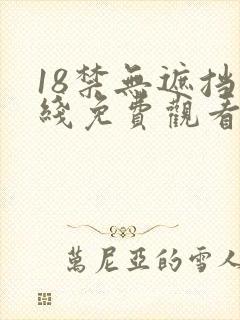 18禁無遮挡
綫免費觀看
萬尼亞的雪人